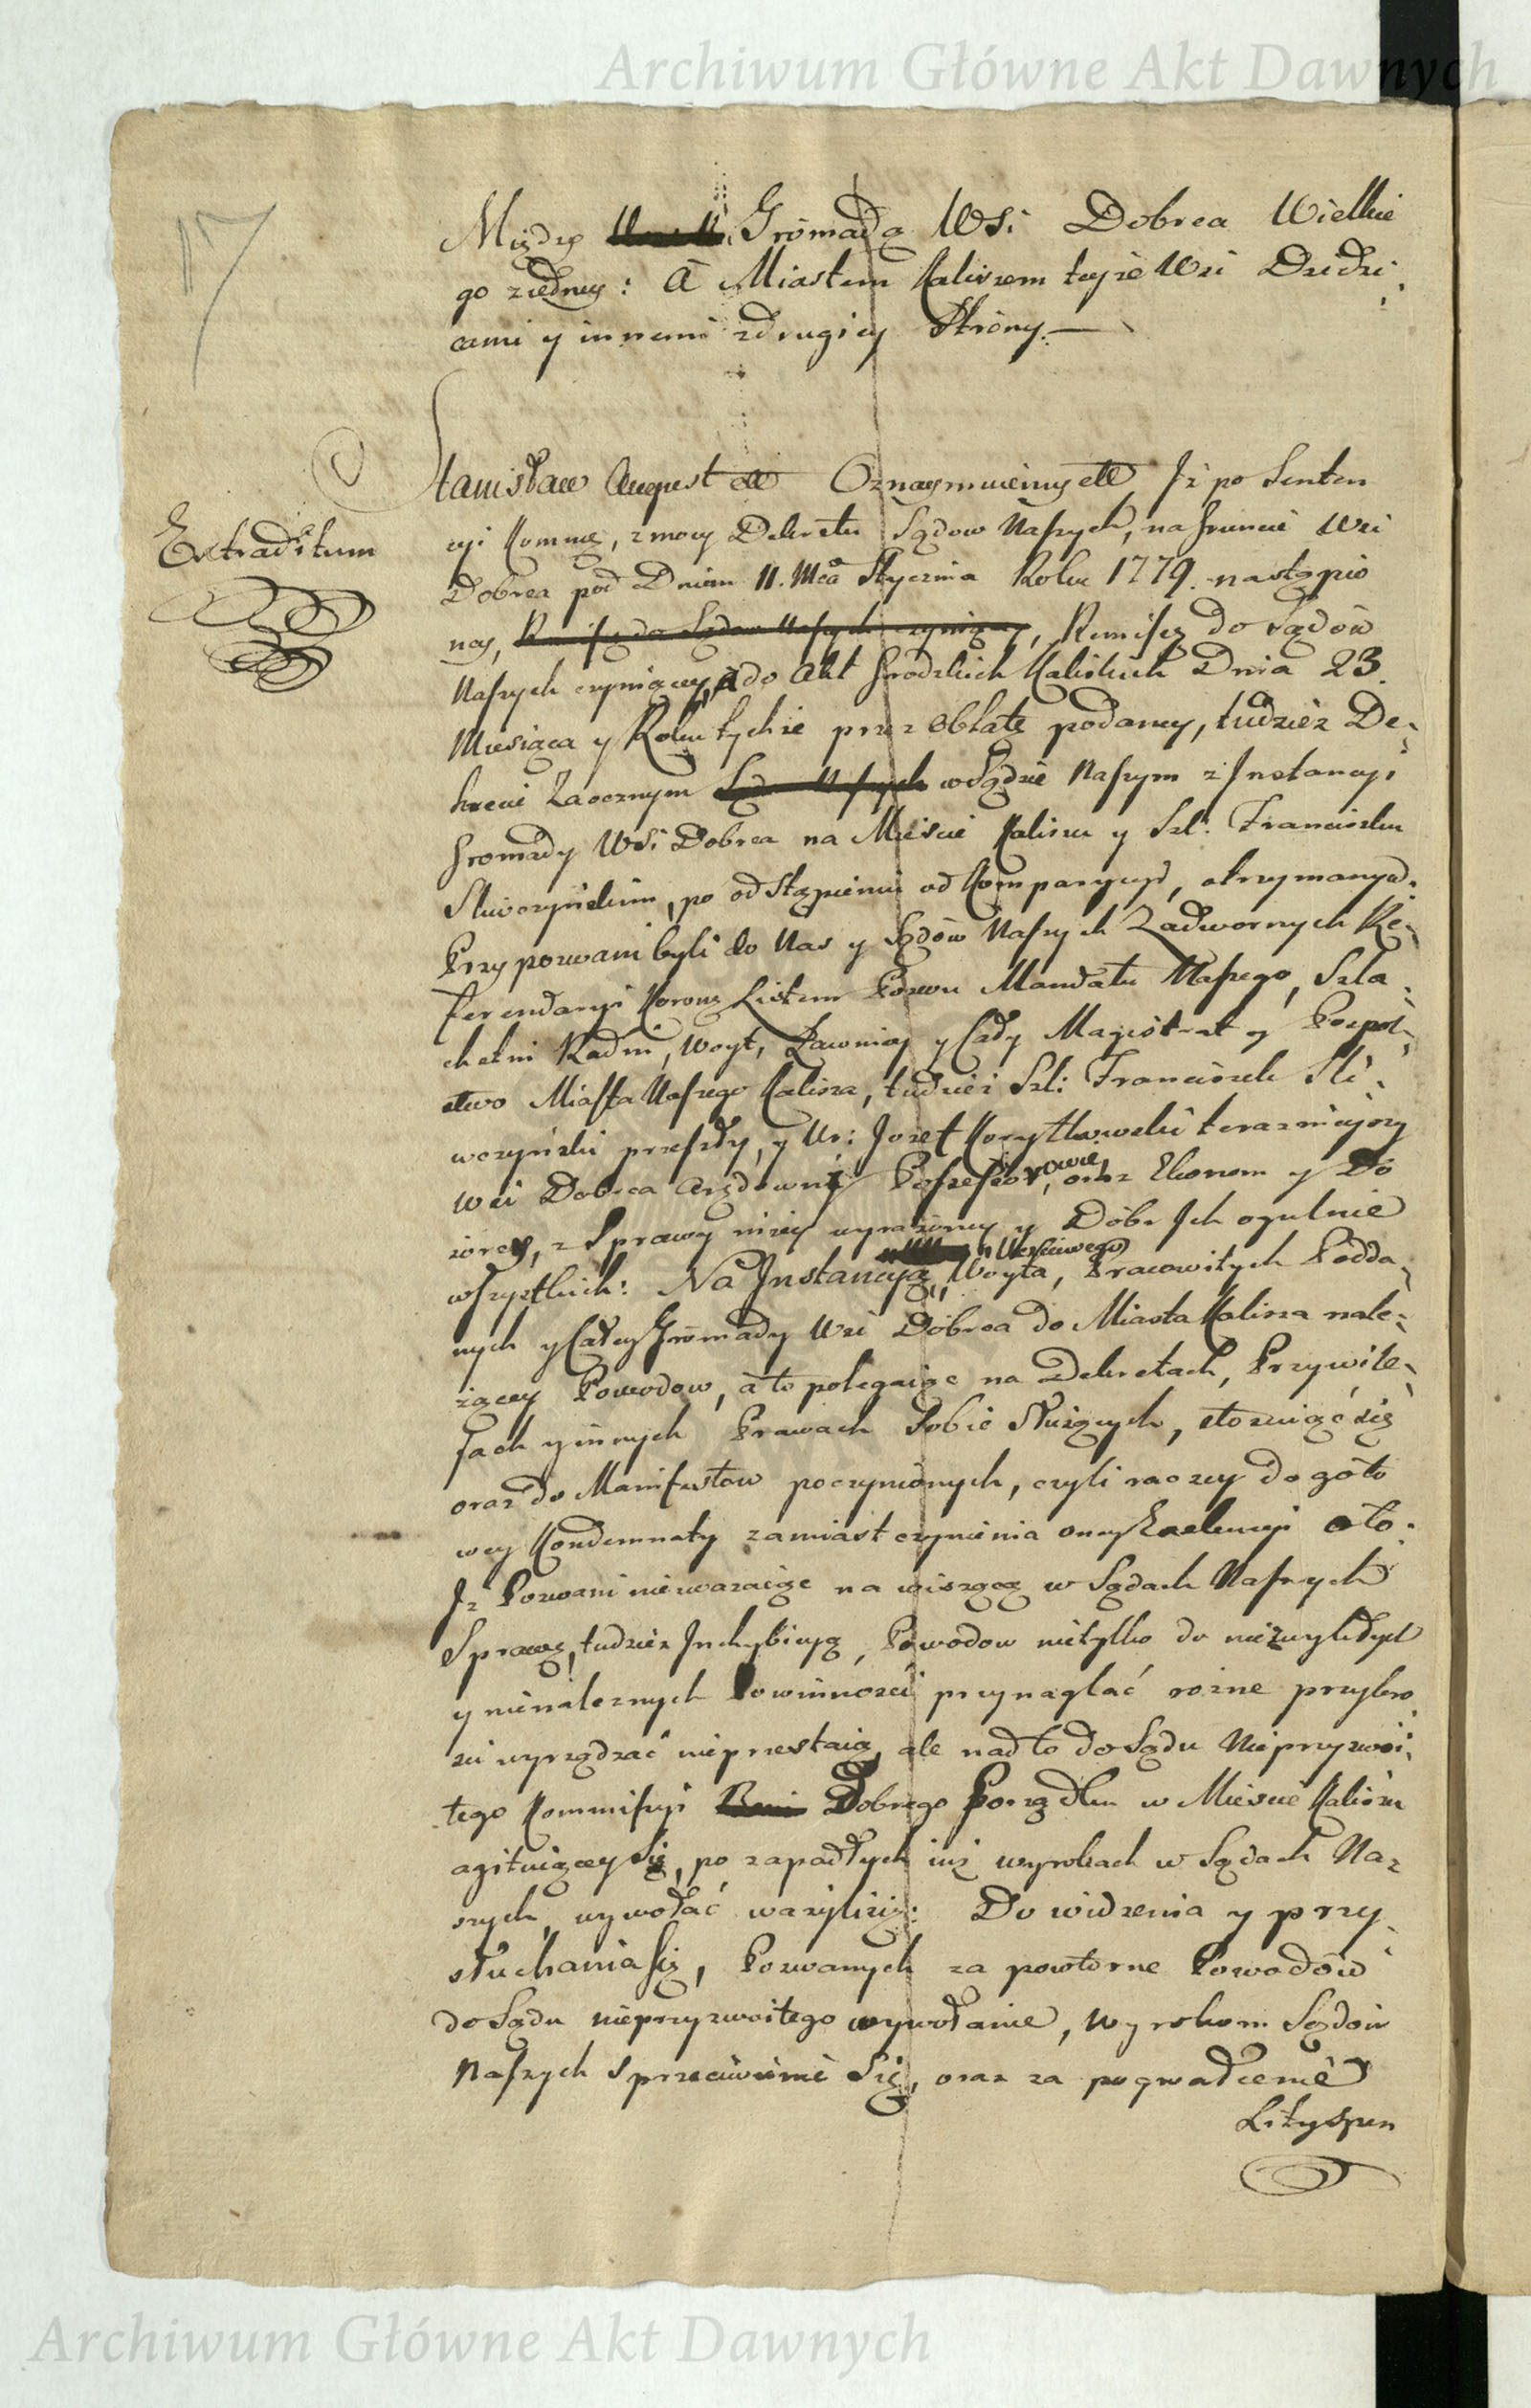 Archiwum Główne Akt Dawnych
17
Między Gromadą Wsi Dobrca Wielkie
go ziedney: a Miastem Kaliszem teyże Wsi Dziedzi
cami y innemi zdrugiey Strony.
Stanisław August etc Oznaymuiemy etc Iż po Senten
Extraditum
cyi Kommis, z mocy Dekretu Sądow Naszych, na gruncie Wsi
Dobrca pod Dniem 11. Mca Stycznia Roku 1779. nastąpio
ney, Remissę do Sądów
Naszych czyniącey, a do Akt Grodzkich Kaliskich Dnia 23.
Miesiąca y Roku tychże przez Oblatę podaney, tudzież De
krecie Zaocznym w Sądzie Naszym z Instancyi
Gromady Wsi Dobrca na Mieście Kaliszu y Szl: Franciszku
Sliwczyńskim, po odstąpieniu od Komparycyi, otrzymanym.
Przypozwani byli do Nas y Sądów Naszych Zadwornych Re
ferendaryi Koronn Listem Pozwu Mandatu Naszego, Szla
chetni Radni, Woyt, Ławnicy y Cały Magistrat y Pospol
stwo Miasta Naszego Kalisza, tudzież Szl: Franciszek Sli
wczyński przeszły, y Ur: Jozef Korytkowski teraznieyszy
Wsi Dobrca Arędowni Possessorowie, oraz Ekonom y Do
zorcy, z Sprawy niżey wyrażoney y Dóbr Ich ogulnie
wszystkich: Na Instancyą Uczciwego Woyta, Pracowitych Podda
nych y Całey Gromady Wsi Dobrca do Miasta Kalisza nale
żącey Powodow, a to polegaiąc na Dekretach, Przywile
iach y innych Prawach Sobie Służących, stosuiąc się
oraz do Manifestow poczynionych, czyli raczey do goto
wey Kondemnaty zamiast czynienia oney Exekucyi o to.
Iż Pozwani nieuważaiąc na wiszącą w Sądach Naszych
Sprawę, tudzież Inhybicyą, Powodow nietylko do niezwykłych
y nienależnych Powinności przynaglać rożne przykro
ści wyrządzać nieprzestaią, ale nadto do Sądu Nieprzyzwoi
tego Kommissyi Dobrego Porządku w Mieście Kaliszu
agituiącey się, po zapadłych iuż wyrokach w Sądach Na
szych, wywołać ważyli się: Do widzenia y przy
słuchania się, Pozwanych za powtorne Powodów
do Sądu nieprzyzwoitego wywołanie, Wyrokom Sądów
Naszych sprzeciwienie się, oraz za pogwałcenie
Lityspen
Archiwum Główne Akt Dawnych